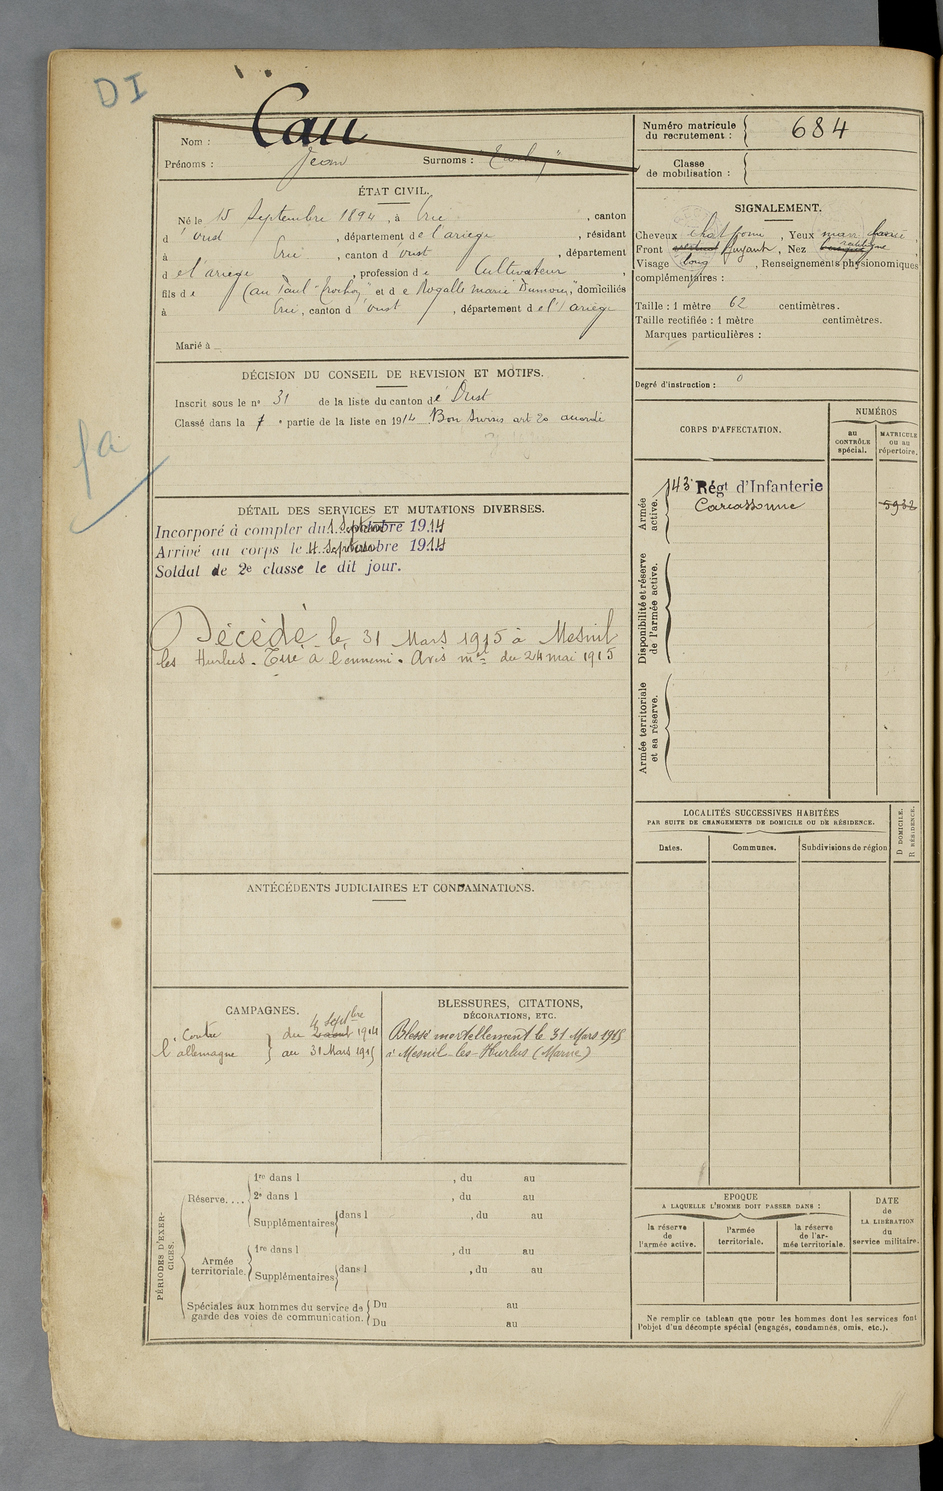 DI
Nom : Cau
Prénoms : Jean Surnoms :
Numéro matricule du recrutement : 684
Classe de mobilisation :
ÉTAT CIVIL.
Né le 15 Septembre 1894, à Ercé, canton
d'Oust, département de l'ariège, résidant
à Ercé, canton d'oust, département
de l'ariège, profession de Cultivateur,
fils de Cau Paul et de Rogalle marie "Dumou", domiciliés
à Ercé, canton d'oust, département de l'ariège
Marié à
SIGNALEMENT.
Cheveux chat , Yeux mar ,
Front fuyant, Nez rectiligne
Visage long, Renseignements physionomiques
complémentaires :
Taille : 1 mètre 62 centimètres.
Taille rectifiée : 1 mètre centimètres.
Marques particulières :
Degré d'instruction : 0
DÉCISION DU CONSEIL DE REVISION ET MOTIFS.
Inscrit sous le nº 31 de la liste du canton d'Oust
Classé dans la 7e partie de la liste en 1914 Bon Sursis art 20 accordé
fa
CORPS D'AFFECTATION.
NUMÉROS
au CONTRÔLE spécial.
MATRICULE OU AU répertoire.
Armée active.
143e Régt d'Infanterie
Carcassonne
5932
Disponibilité et réserve de l'armée active.
Armée territoriale et sa réserve.
DÉTAIL DES SERVICES ET MUTATIONS DIVERSES.
Incorporé à compter du 1 Septembre 1914
Arrivé au corps le 4 Septembre 1914
Soldat de 2e classe le dit jour.
Décédé le 31 Mars 1915 à Mesnil
les Hurlus. Tué à l'ennemi. Avis mel du 24 mai 1915
LOCALITÉS SUCCESSIVES HABITÉES
PAR SUITE DE CHANGEMENTS DE DOMICILE OU DE RÉSIDENCE.
Dates. Communes. Subdivisions de région
D DOMICILE.
R RÉSIDENCE.
ANTÉCÉDENTS JUDICIAIRES ET CONDAMNATIONS.
CAMPAGNES.
Contre l'allemagne
du 2 août 4 septbre 1914
au 31 Mars 1915
BLESSURES, CITATIONS,
DÉCORATIONS, ETC.
Blessé mortellement le 31 Mars 1915
à Mesnil-les-Hurlus (Marne)
PÉRIODES D'EXERCICES.
Réserve....
1re dans l , du au
2e dans l , du au
Supplémentaires dans l , du au
Armée territoriale.
1re dans l , du au
Supplémentaires dans l , du au
Spéciales aux hommes du service de garde des voies de communication.
Du au
Du au
EPOQUE
A LAQUELLE L'HOMME DOIT PASSER DANS :
la réserve de l'armée active.
l'armée territoriale.
la réserve de l'armée territoriale.
DATE de LA LIBÉRATION du service militaire.
Ne remplir ce tableau que pour les hommes dont les services font
l'objet d'un décompte spécial (engagés, condamnés, omis, etc.).